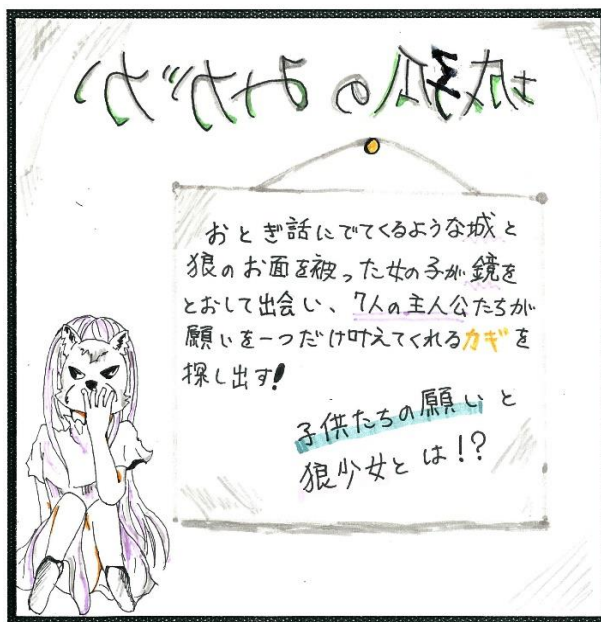 かがみの孤城
おとぎ話にでてくるような城と
狼のお面を被った女の子が鏡を
とおして出会い、7人の主人公たちが
願いを一つだけ叶えてくれるカギを
探し出す!
子供たちの願いと
狼少女とは!?